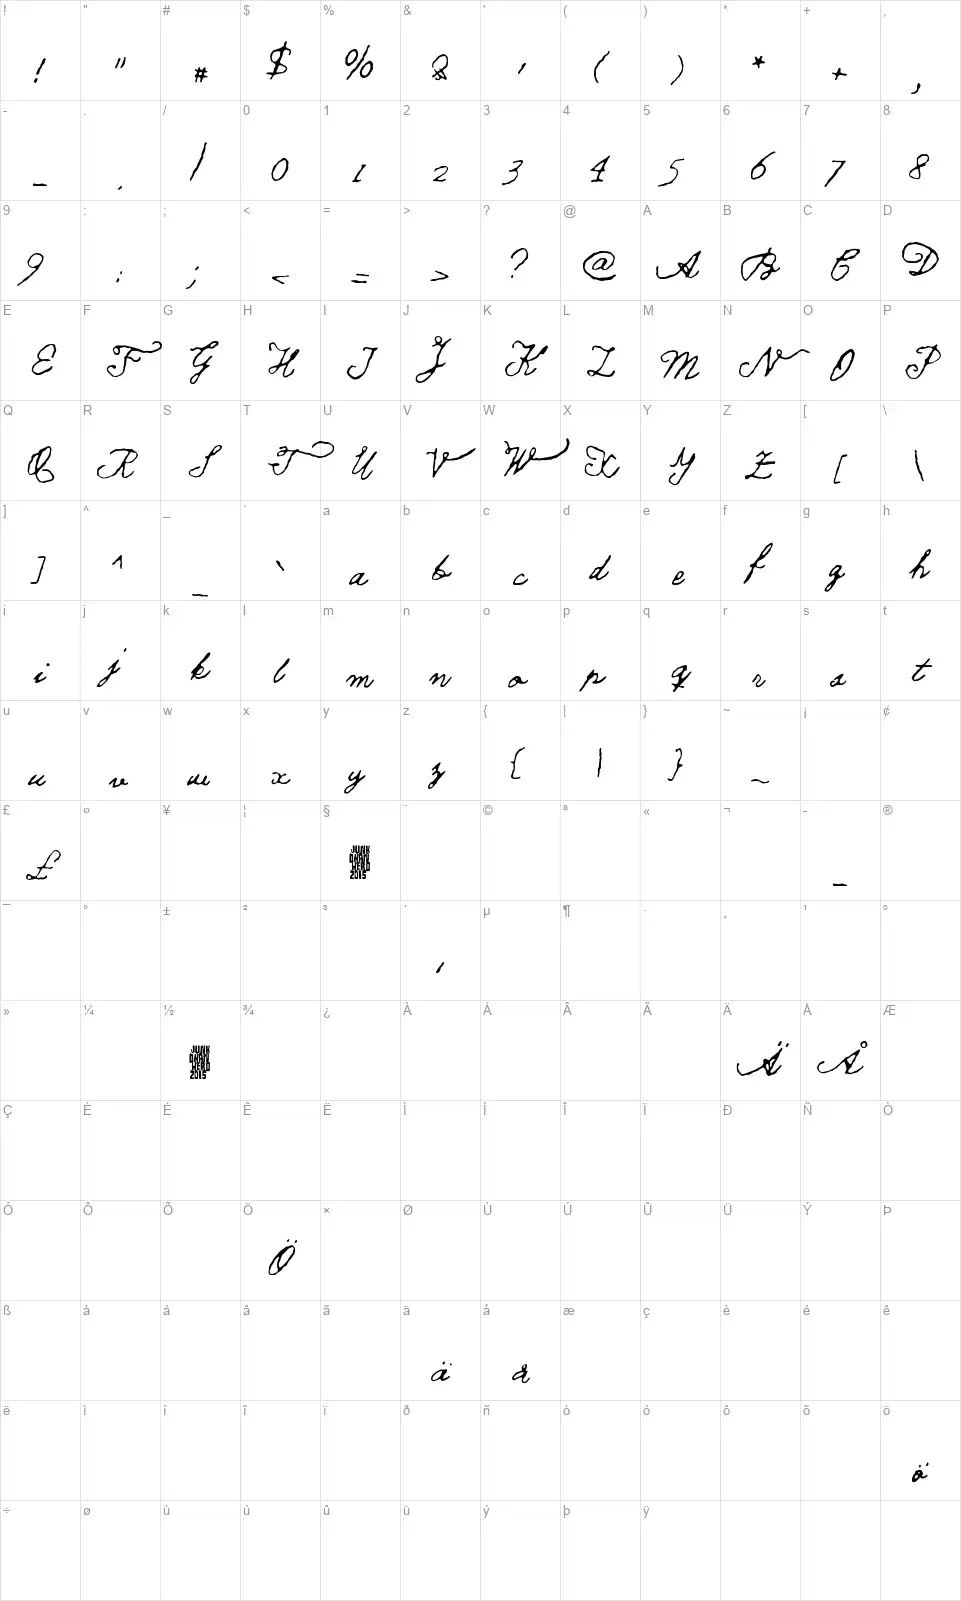 ! " # $ % & ' ( ) * + ,
! " # $ % & ' ( ) * + ,
- . / 0 1 2 3 4 5 6 7 8
- . / 0 1 2 3 4 5 6 7 8
9 : ; < = > ? @ A B C D
9 : ; < = > ? @ A B C D
E F G H I J K L M N O P
E F G H I J K L M N O P
Q R S T U V W X Y Z [ \
Q R S T U V W X Y Z [ \
] ^ _ ` a b c d e f g h
] ^ _ ` a b c d e f g h
i j k l m n o p q r s t
i j k l m n o p q r s t
u v w x y z { | } ~ ¡ ¢
u v w x y z { | } ~
£ ¤ ¥ ¦ § ¨ © ª « ¬ - ®
£ JUNK OHANZ HERO 2015 -
¯ ° ± ² ³ ´ µ ¶ · ¸ ¹ º
´
» ¼ ½ ¾ ¿ À Á Â Ã Ä Å Æ
2015 Ä Å
Ç È É Ê Ë Ì Í Î Ï Ð Ñ Ò
Ó Ô Õ Ö × Ø Ù Ú Û Ü Ý Þ
Ö
ß à á â ã ä å æ ç è é ê
ä å
ë ì í î ï ð ñ ò ó ô õ ö
ö
÷ ø ù ú û ü ý þ ÿ